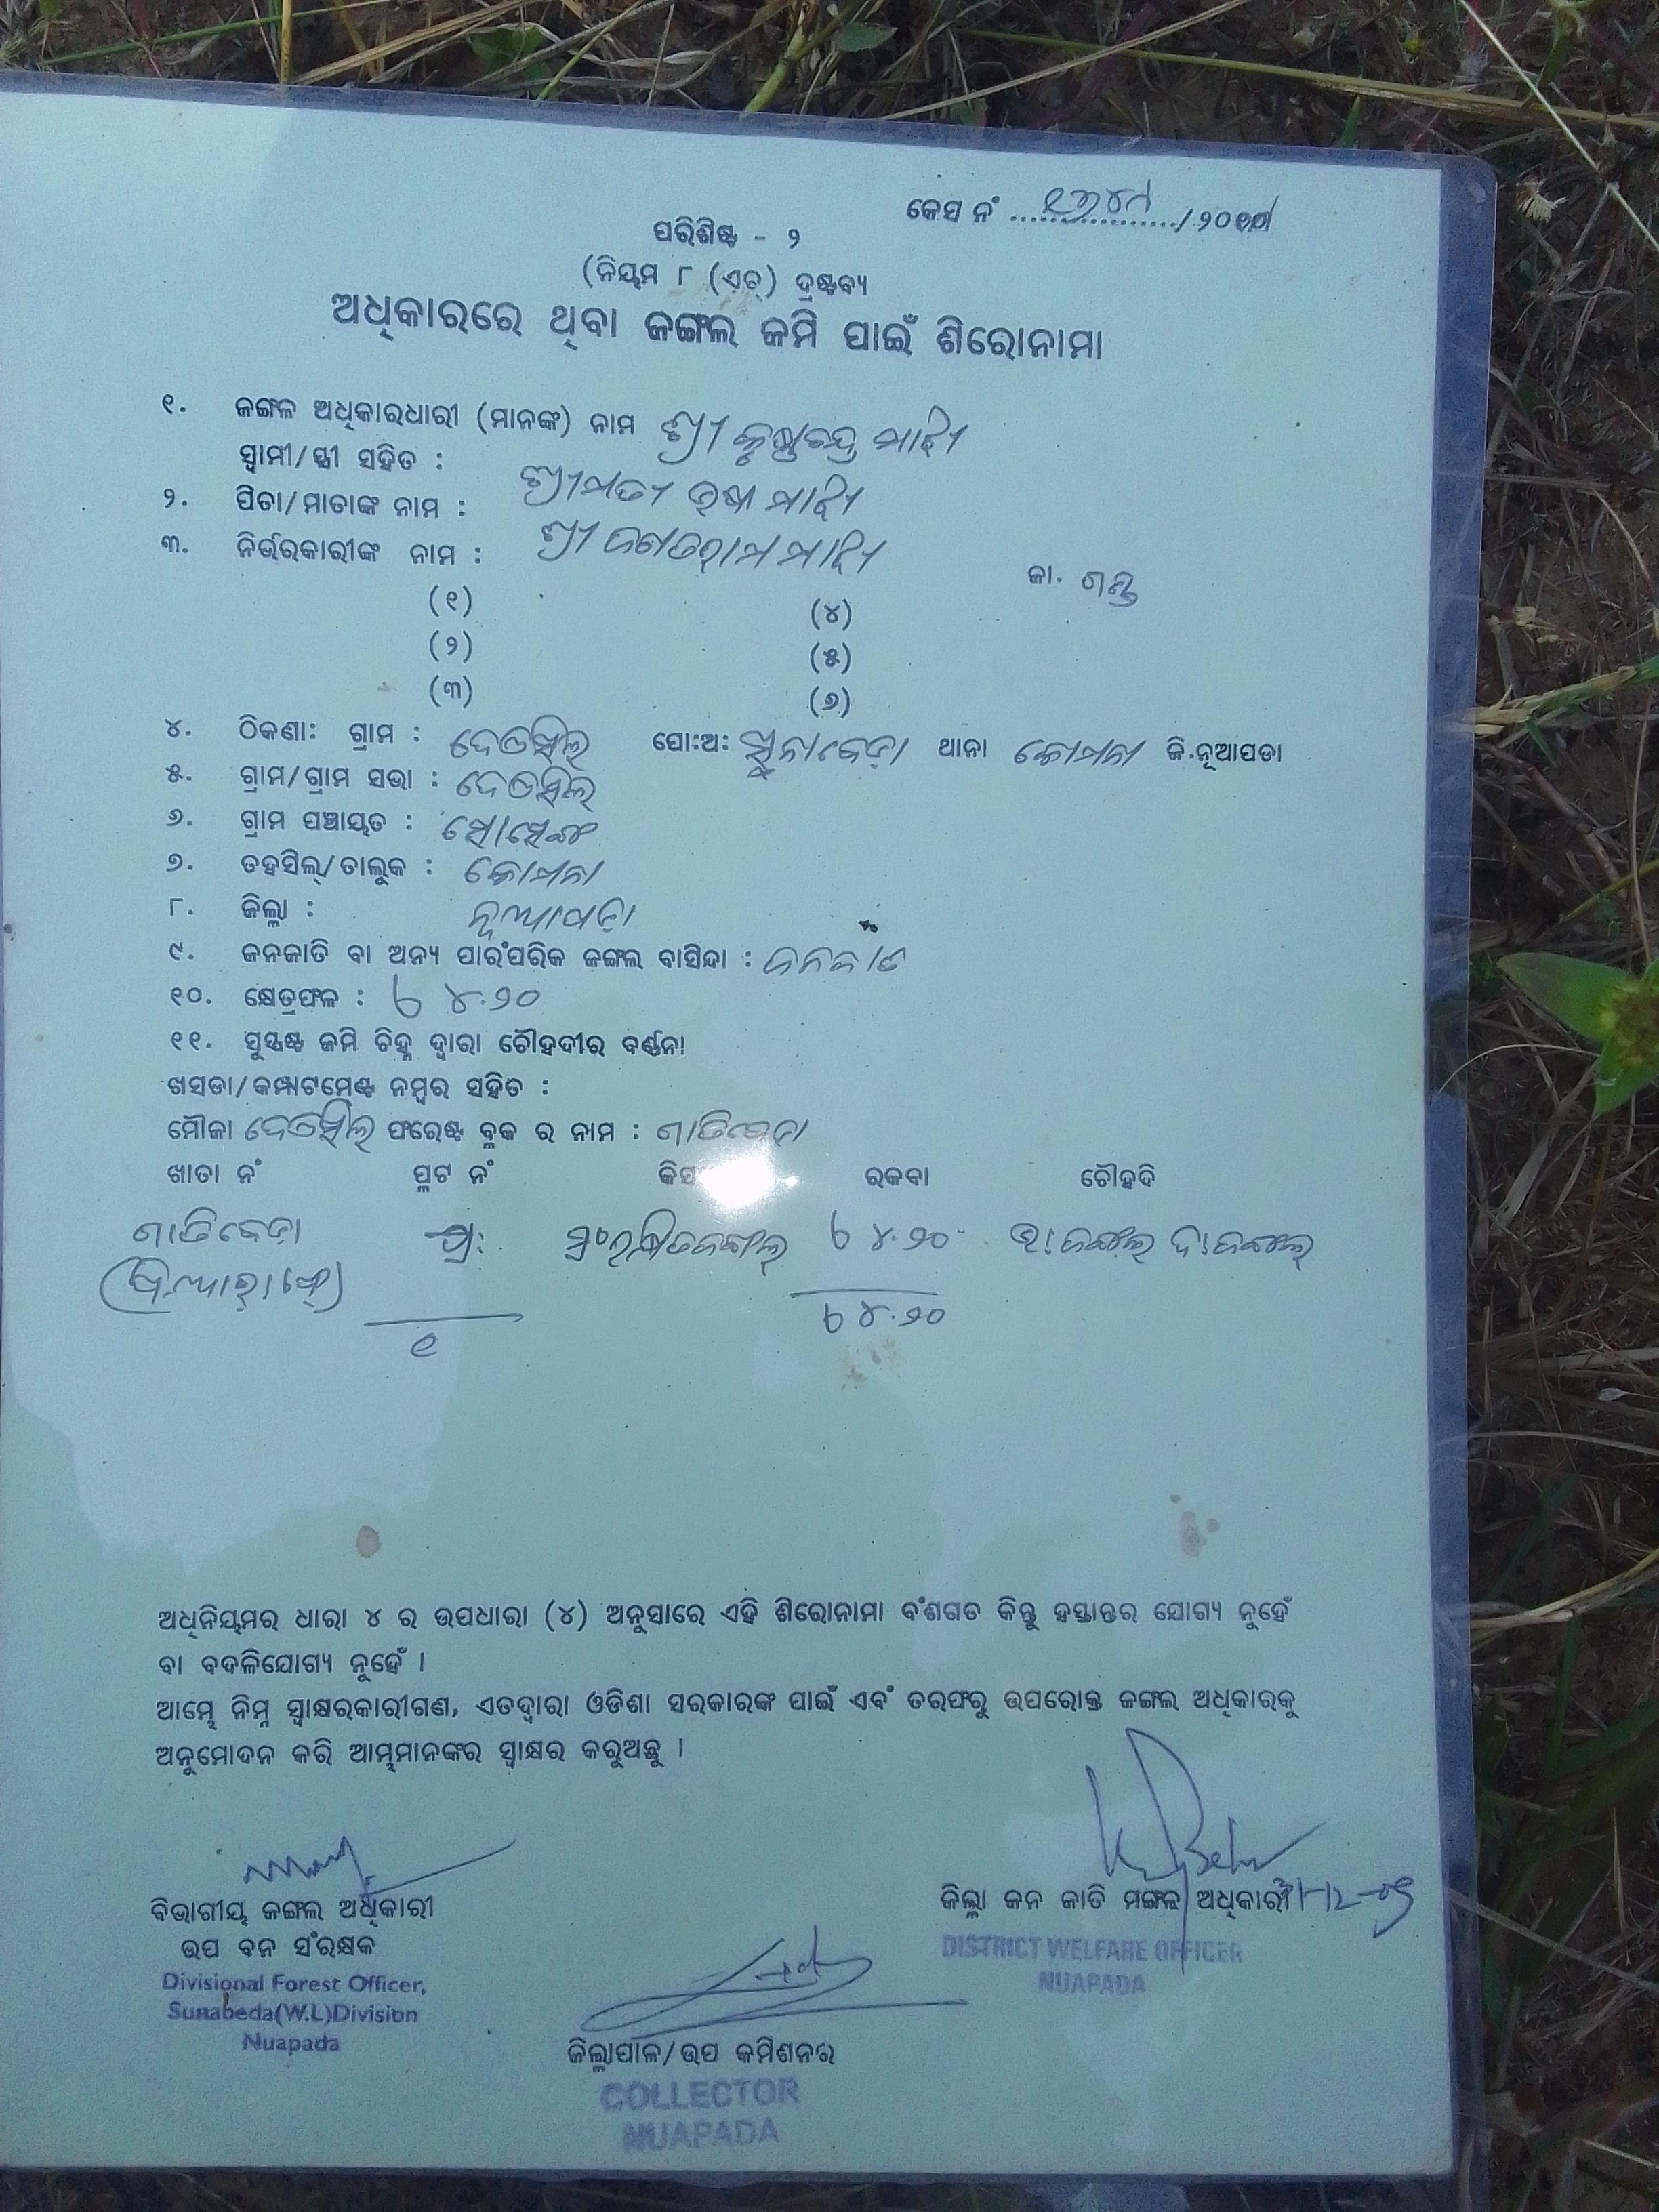 କେସ ନଂ ................../୨୦
ପରିଶିଷ୍ଟ - ୨
(ନିୟମ ୮ (ଏଚ୍) ଦ୍ରଷ୍ଟବ୍ୟ
ଅଧିକାରରେ ଥିବା ଜଙ୍ଗଲ ଜମି ପାଇଁ ଶିରୋନାମା
୧. ଜଙ୍ଗଳ ଅଧିକାରଧାରୀ (ମାନଙ୍କ) ନାମ ଶ୍ରୀ କୃଷ୍ଣଚନ୍ଦ୍ର ମାଝୀ
ସ୍ୱାମୀ/ସ୍ତ୍ରୀ ସହିତ : ଶ୍ରୀମତୀ ମାଝୀ
୨. ପିତା/ମାତାଙ୍କ ନାମ : ଶ୍ରୀ ମାଝୀ
୩. ନିର୍ଭରକାରୀଙ୍କ ନାମ : ଜା. ଗଣ୍ଡ
(୧) (୪)
(୨) (୫)
(୩) (୬)
୪. ଠିକଣା: ଗ୍ରାମ : ଦେଓସିଲ ପୋ:ଅ: ସୁନାବେଡ଼ା ଥାନା କୋମନା ଜି.ନୂଆପଡା
୫. ଗ୍ରାମ/ଗ୍ରାମ ସଭା : ଦେଓସିଲ
୬. ଗ୍ରାମ ପଞ୍ଚାୟତ : ସୋସେଙ୍ଗ
୭. ତହସିଲ୍/ତାଲୁକ : କୋମନା
୮. ଜିଲ୍ଲା : ନୂଆପଡ଼ା
୯. ଜନଜାତି ବା ଅନ୍ୟ ପାରଂପରିକ ଜଙ୍ଗଲ ବାସିନ୍ଦା : ଜନଜାତି
୧୦. କ୍ଷେତ୍ରଫଳ : ୪.୨୦
୧୧. ସୁସ୍ପଷ୍ଟ ଜମି ଚିହ୍ନ ଦ୍ୱାରା ଚୌହଦୀର ବର୍ଣ୍ଣନା
ଖସଡା/କମ୍ପାଟମେଣ୍ଟ ନମ୍ବର ସହିତ :
ମୌଜା ଦେଓସିଲ ଫରେଷ୍ଟ ବ୍ଲକ ର ନାମ : ଗାତିବେଡ଼ା
ଖାତା ନଂ ପ୍ଲଟ ନଂ ରକବା ଚୌହଦି
ଗାତିବେଡ଼ା ସଂରକ୍ଷିତଜଙ୍ଗଲ ୪.୨୦ ଉ।ଜଙ୍ଗଲ ଦ।ଜଙ୍ଗଲ
୧ ୪.୨୦
ଅଧିନିୟମର ଧାରା ୪ ର ଉପଧାରା (୪) ଅନୁସାରେ ଏହି ଶିରୋନାମା ବଂଶଗତ କିନ୍ତୁ ହସ୍ତାନ୍ତର ଯୋଗ୍ୟ ନୁହେଁ
ବା ବଦଳିଯୋଗ୍ୟ ନୁହେଁ ।
ଆମ୍ଭେ ନିମ୍ନ ସ୍ୱାକ୍ଷରକାରୀଗଣ, ଏତଦ୍ୱାରା ଓଡିଶା ସରକାରଙ୍କ ପାଇଁ ଏବଂ ତରଫରୁ ଉପରୋକ୍ତ ଜଙ୍ଗଲ ଅଧିକାରକୁ
ଅନୁମୋଦନ କରି ଆମ୍ଭମାନଙ୍କର ସ୍ୱାକ୍ଷର କରୁଅଛୁ ।
ବିଭାଗୀୟ ଜଙ୍ଗଲ ଅଧିକାରୀ
ଉପ ବନ ସଂରକ୍ଷକ
Divisional Forest Officer,
Sunabeda(W.L)Division
Nuapada
ଜିଲ୍ଲାପାଳ/ଉପ କମିଶନର
COLLECTOR
NUAPADA
ଜିଲ୍ଲା ଜନ ଜାତି ମଙ୍ଗଳ ଅଧିକାରୀ
DISTRICT WELFARE OFFICER
NUAPADA